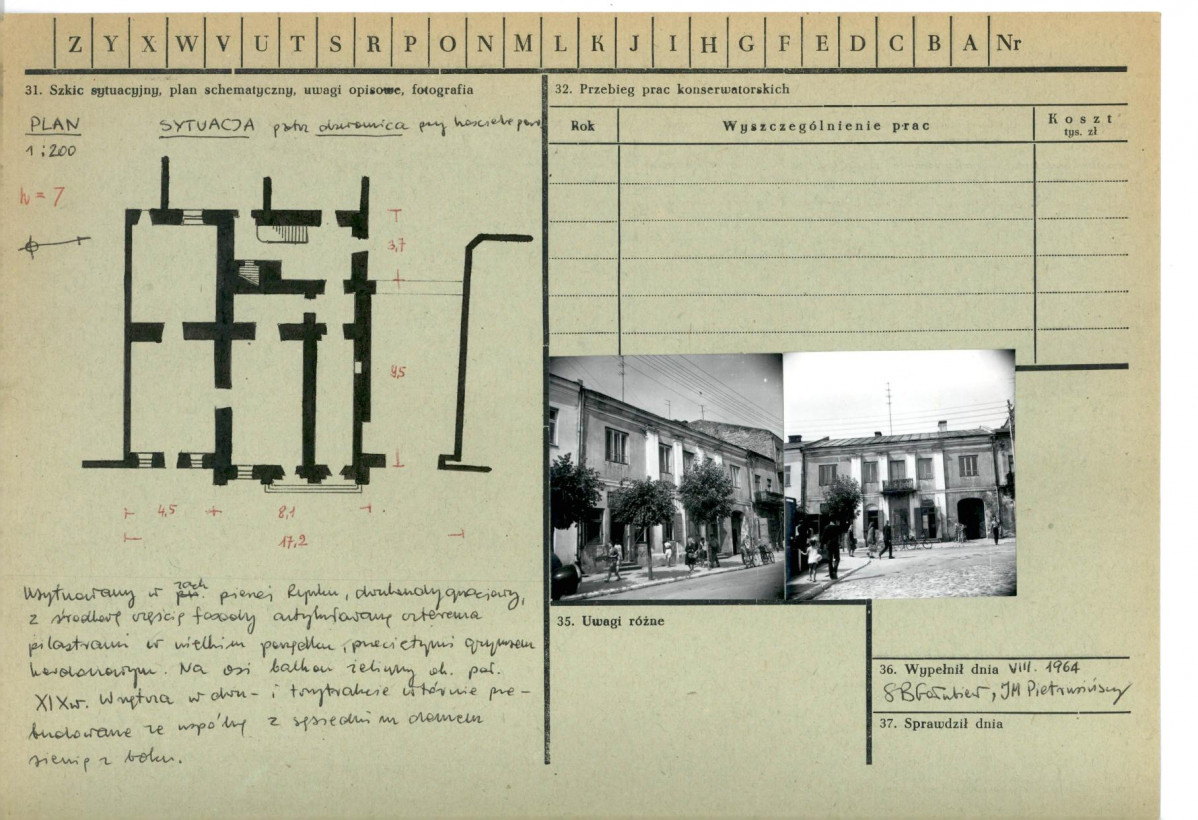 Z Y X W V U T S R P O N M L K J I H G F E D C B A Nr
31. Szkic sytuacyjny, plan schematyczny, uwagi opisowe, fotografia
PLAN
1:200
SYTUACJA patrz dzwonnica przy kościele par
h = 7
3,7
9,5
4,5 8,1
17,2
Usytuowany w zach. pierzei Rynku, dwukondygnacjowy,
z środkową częścią fasady artykułowaną czterema
pilastrami w wielkim porządku, przeciętymi gzymsem
kordonowym. Na osi balkon żeliwny ok. poł.
XIX w. Wnętrza w dwu- i trzytrakcie wtórnie prze-
budowane ze wspólną z sąsiednim domem
sienią z boku.
32. Przebieg prac konserwatorskich
Rok Wyszczególnienie prac Koszt
tys. zł
35. Uwagi różne
36. Wypełnił dnia VIII. 1964
JM Pietrusiński
37. Sprawdził dnia